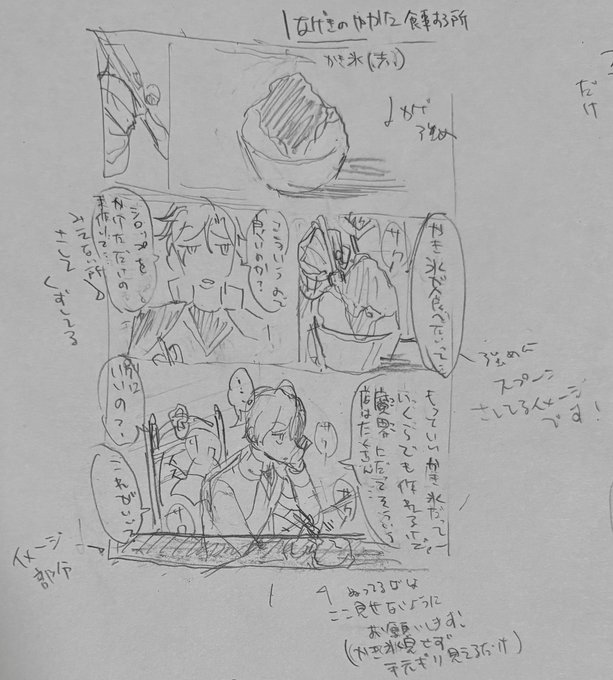 なげきのやかた 食事する所
かき氷(赤)
↓かげ
強め
だけ
かき氷が食べたいって…
ザク
こういうので
良いのか?
シロップを
かけただけの
手作りで…
見えない所
さして
くずしてる
強めに
スプーン
さしてるイメージ
です!
もっといいかき氷だって
いくらでも作れるけど。
魔界
店はたくさん
…!
ザク
ザク
別に
いいの?
これがいいって
イメージ
部分
ぬってるなは
ここ見せないように
お願いします。
(かき氷見せず
手元ギリ見えるだけ)